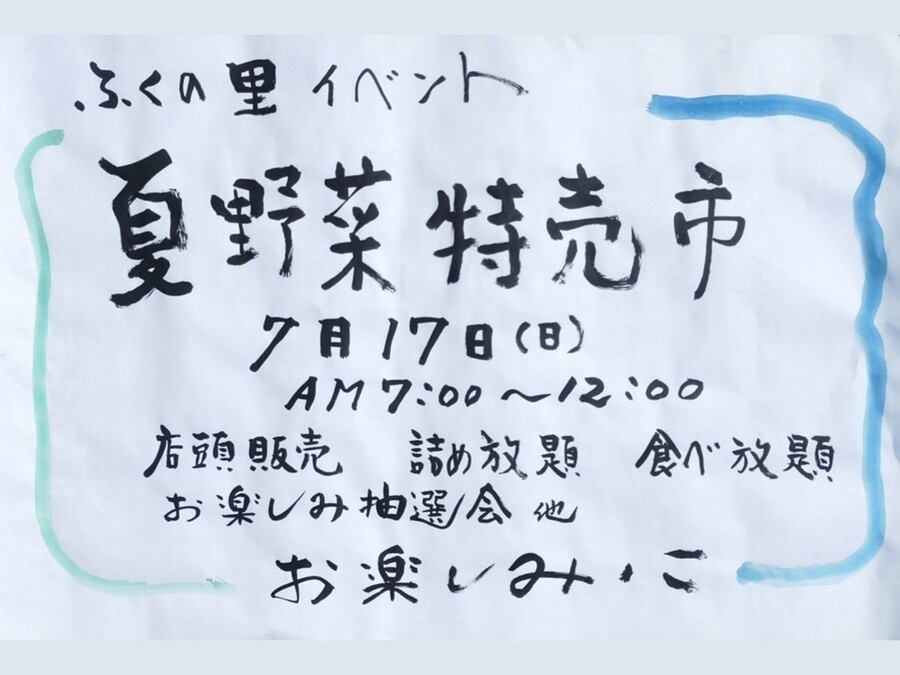 ふくの里 イベント
夏野菜 特売市
7月17日(日)
AM7:00〜12:00
店頭販売 詰め放題 食べ放題
お楽しみ抽選会 他
お楽しみに